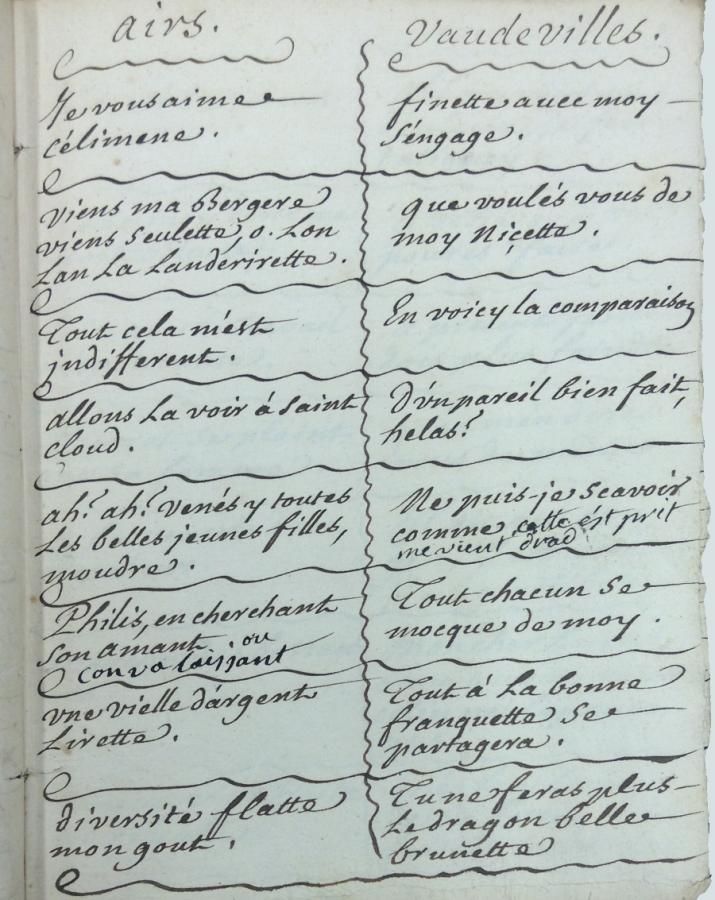 airs.
Je vous aime
célimene.
viens ma Bergere
viens seulette, o. Lon
Lan La Landérirette.
Tout cela n'est
jndifferent.
allons La voir á saint
cloud.
ah! ah! venés y toutes
Les belles jeunes filles,
moudre.
Philis, en cherchant
son amant ou
une vielle d'argent
Lirette.
diversité flatte
mon gout.
Vaudevilles.
finette avec moy
s'éngage.
que voulés vous de
moy Niçette.
En voicy la comparaison
D'vn pareil bien fait,
helas!
Ne puis-je scavoir
comme cette ést prit
me vient
Tout chacun se
mocque de moy.
Tout á La bonne
franquette se
partagera.
Tu ne feras plus
Le dragon belle
brunette